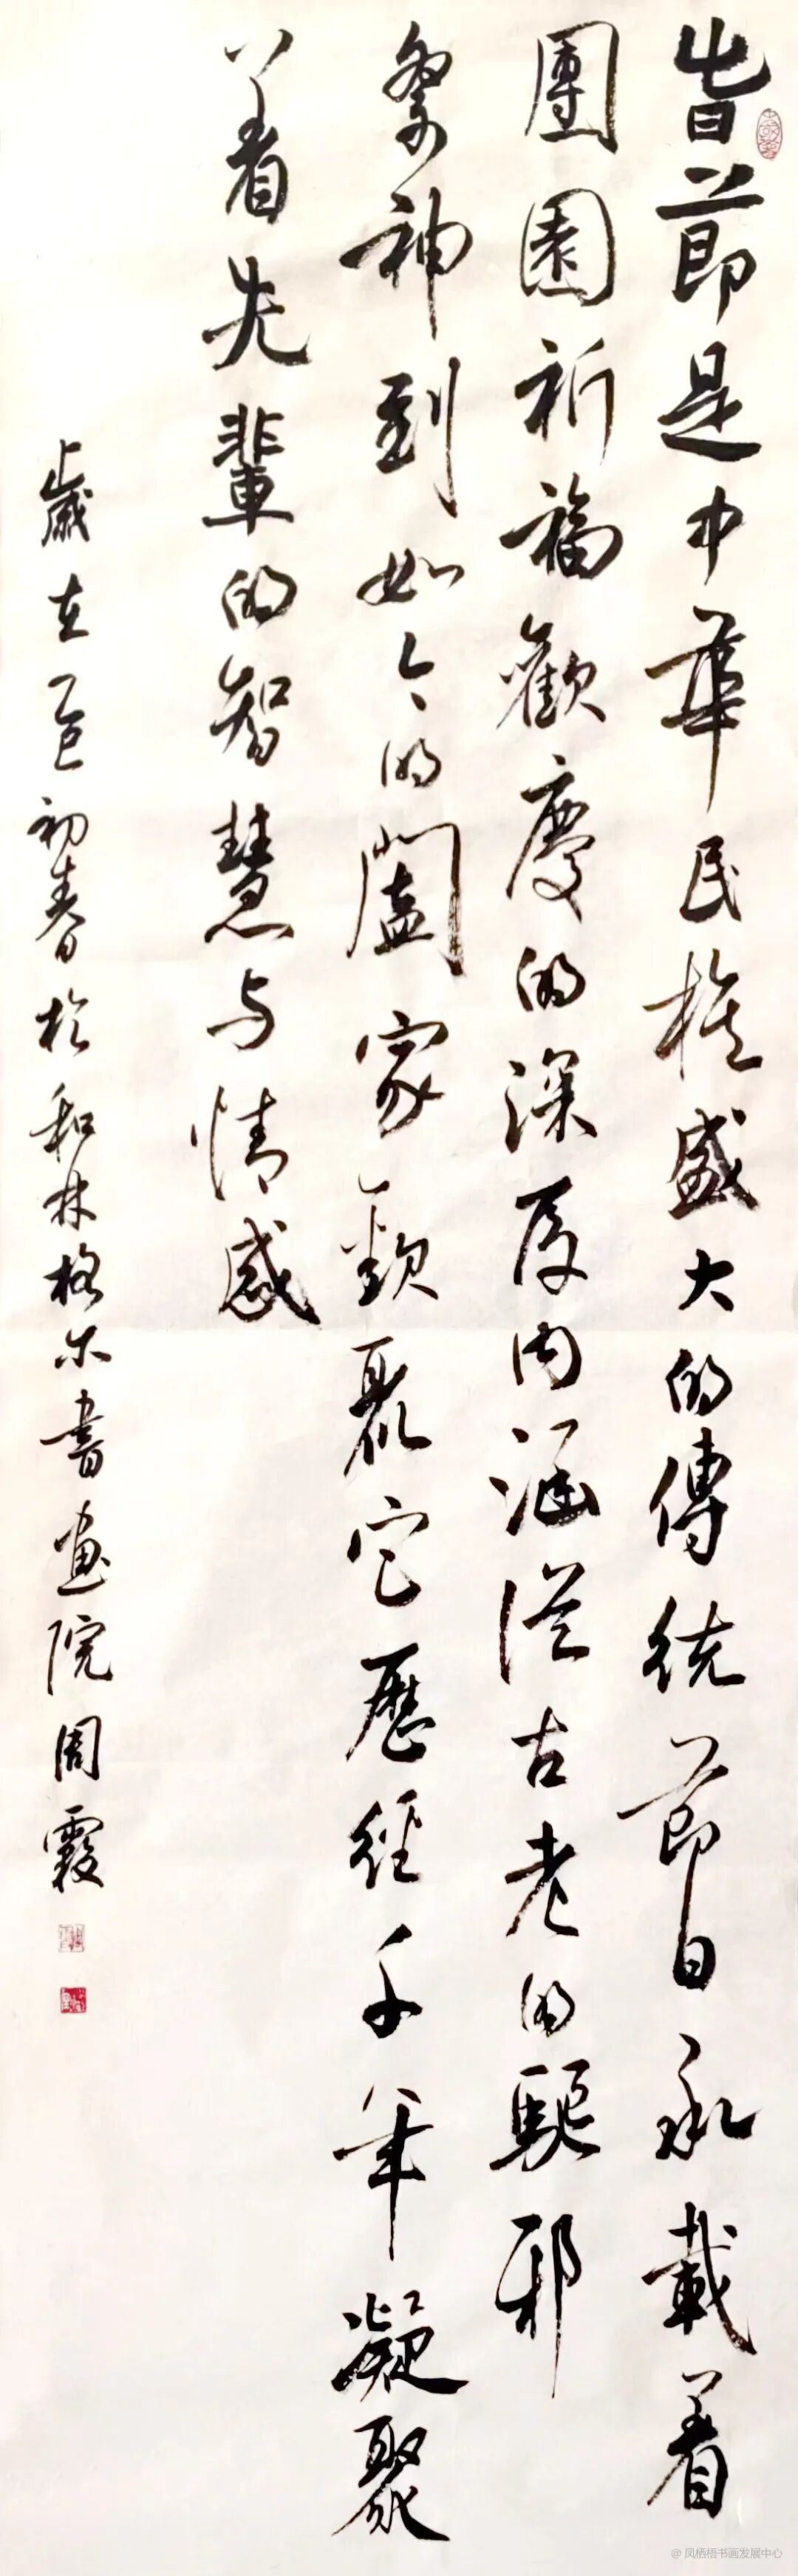 旹節是中華民族盛大的傳統節日承載着
團園祈福歡慶的深厚内涵從古老的驅邪
祭神到如今的闔家歡聚它歷經千年凝聚
着先輩的智慧与情感
歲在乙巳初春於和林格尔書画院周霞
@ 凤栖梧书画发展中心